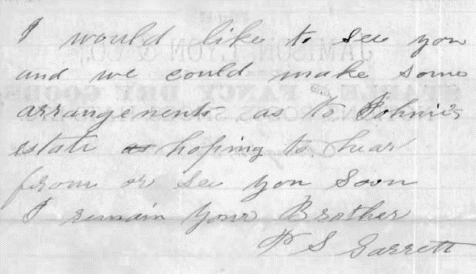 I would like to see you
and we could make some
arrangements as to Johnies
estate as hoping to hear
from or see you soon
I remain your Brother
P S Garrett
JAMISON, & CO.
FANCY DRY GOODS